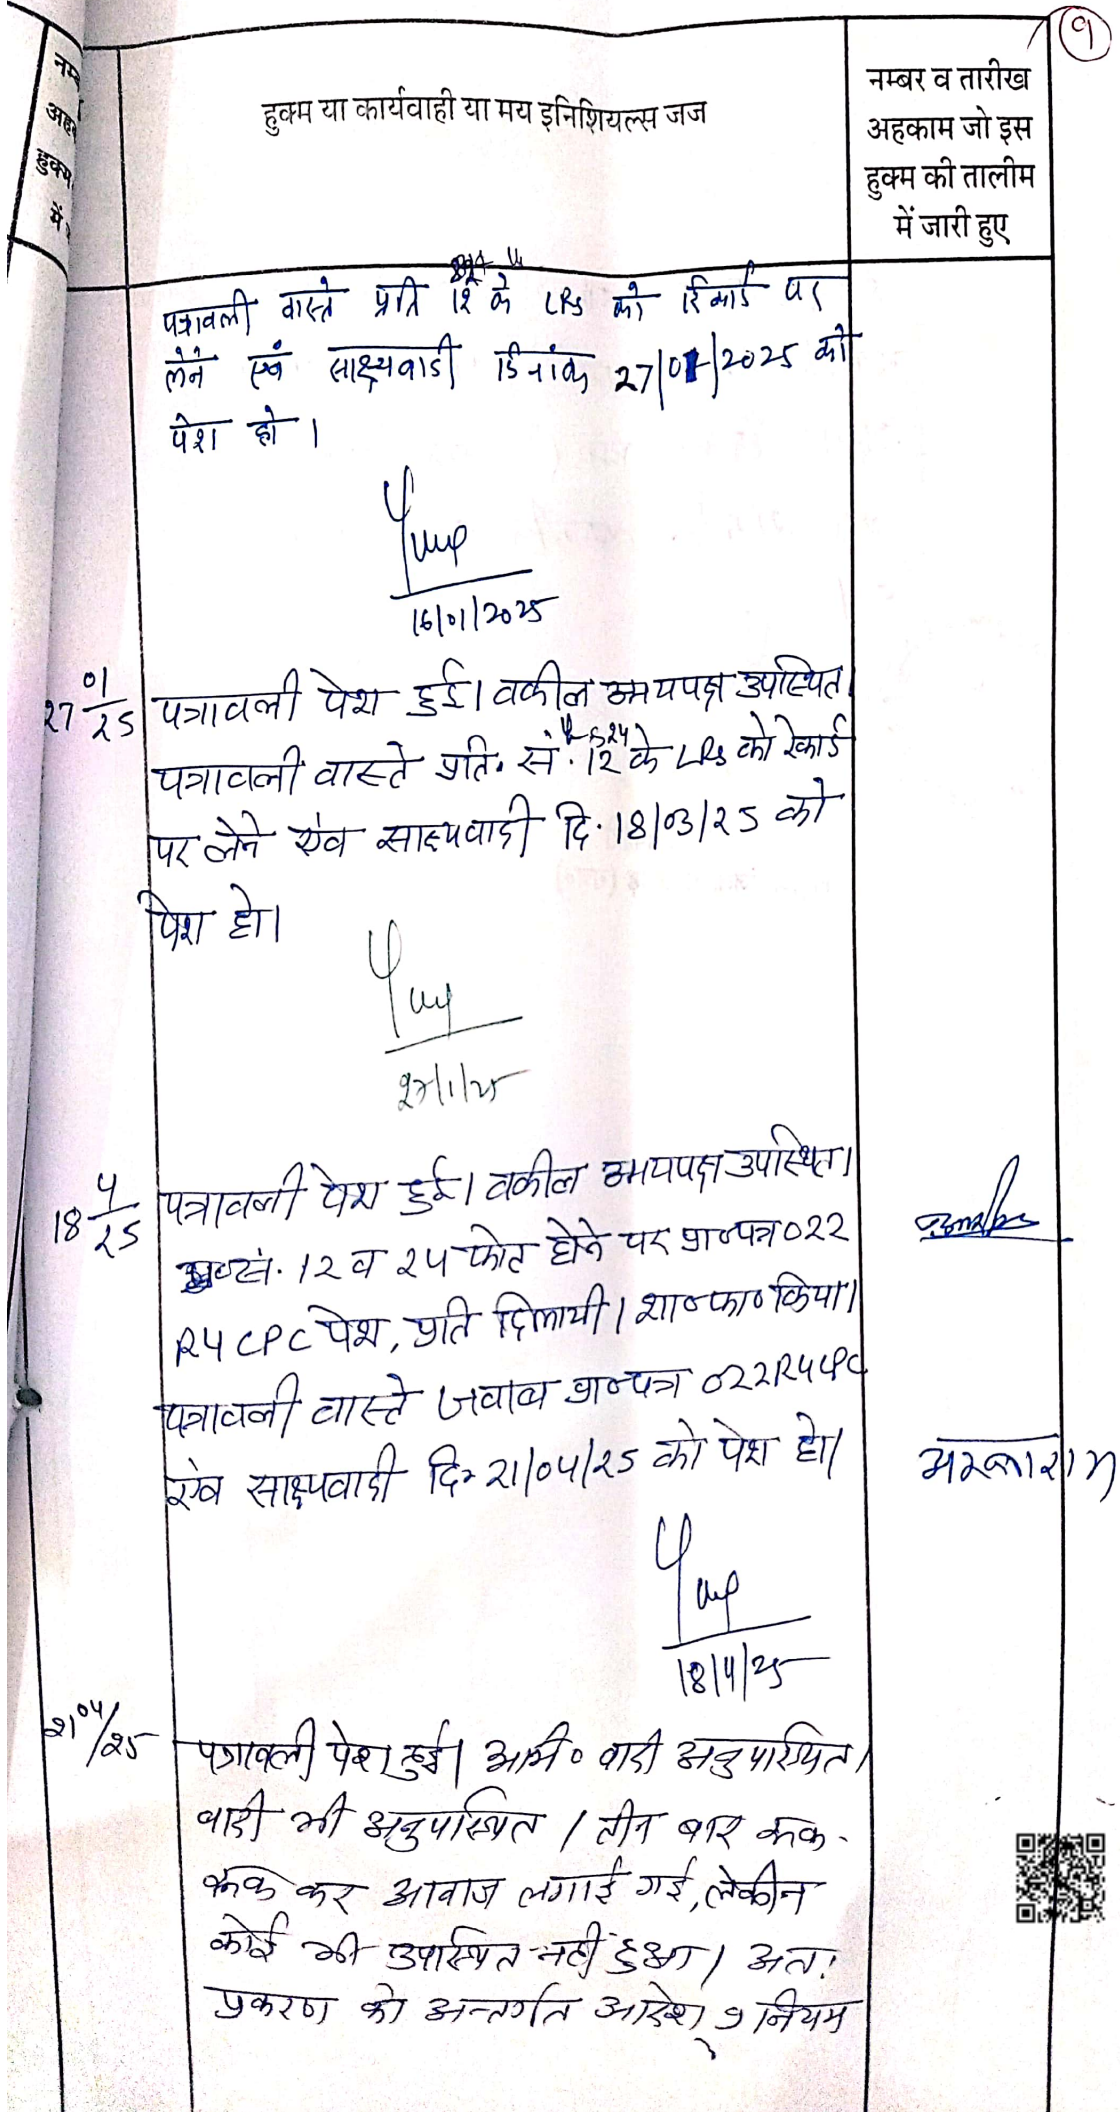 ९
नम्ब
अह
हुक्म
में
हुक्म या कार्यवाही या मय इनिशियल्स जज
नम्बर व तारीख
अहकाम जो इस
हुक्म की तालीम
में जारी हुए
पत्रावली वास्ते प्रति 12 के LRs को रिकार्ड पर
लेने एवं साक्ष्यवादी दिनांक 27/01/2025 को
पेश हो।
16/01/2025
27 01/25 पत्रावली पेश हुई। वकील उभयपक्ष उपस्थित।
व 24
पत्रावली वास्ते प्रति. सं. 12 के LRs को रेकार्ड
पर लेने एंव साक्ष्यवादी दि. 18/03/25 को
पेश हो।
27/1/25
18 4/25 पत्रावली पेश हुई। वकील उभयपक्ष उपस्थित।
सं. 12 व 24 फोत होने पर प्रा०पत्र O22
R4 CPC पेश, प्रति दिलायी। शा०फा० किया।
पत्रावली वास्ते जवाब प्रा०पत्र O22R4CPC
एंव साक्ष्यवादी दि० 21/04/25 को पेश हो।
18/4/25
21 04/25 पत्रावली पेश हुई। अभि० वादी अनुपस्थित।
वादी भी अनुपस्थित। तीन बार रूक-
रूक कर आवाज लगाई गई, लेकीन
कोई भी उपस्थित नहीं हुआ। अत:
प्रकरण को अन्तर्गत आदेश 9 नियम